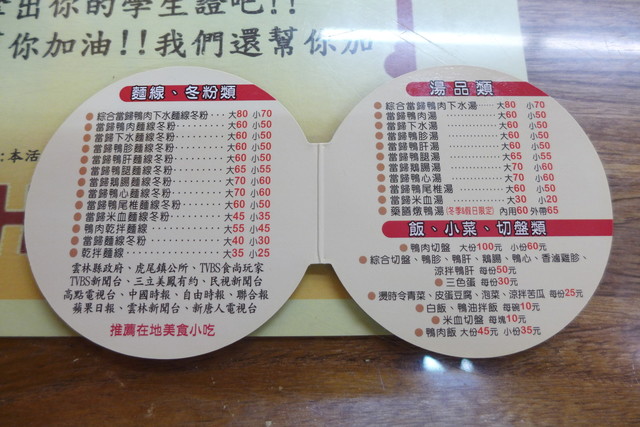 拿出你的學生證吧!!
你加油!!我們還幫你加
:本活
麵線、冬粉類
綜合當歸鴨肉下水麵線冬粉‧‧‧大80 小70
當歸鴨肉麵線冬粉‧‧‧大60 小50
當歸下水麵線冬粉‧‧‧大60 小50
當歸鴨胗麵線冬粉‧‧‧大60 小50
當歸鴨肝麵線冬粉‧‧‧大60 小50
當歸鴨腿麵線冬粉‧‧‧大65 小55
當歸鵝腸麵線冬粉‧‧‧大70 小60
當歸鴨心麵線冬粉‧‧‧大70 小60
當歸鴨尾椎麵線冬粉‧‧‧大60 小50
當歸米血麵線冬粉‧‧‧大45 小35
鴨肉乾拌麵線‧‧‧大55 小45
當歸麵線冬粉‧‧‧大40 小30
乾拌麵線‧‧‧大35 小25
雲林縣政府、虎尾鎮公所、TVBS食尚玩家
TVBS新聞台、三立美鳳有約、民視新聞台
高點電視台、中國時報、自由時報、聯合報
蘋果日報、雲林新聞台、新唐人電視台
推薦在地美食小吃
湯品類
綜合當歸鴨肉下水湯‧‧‧大80 小70
當歸鴨肉湯‧‧‧大60 小50
當歸下水湯‧‧‧大60 小50
當歸鴨胗湯‧‧‧大60 小50
當歸鴨肝湯‧‧‧大60 小50
當歸鴨腿湯‧‧‧大65 小55
當歸鵝腸湯‧‧‧大70 小60
當歸鴨心湯‧‧‧大70 小60
當歸鴨尾椎湯‧‧‧大60 小50
當歸米血湯‧‧‧大30 小20
藥膳燉鴨湯(冬季&假日限定) 內用60 外帶65
飯、小菜、切盤類
鴨肉切盤 大份100元 小份60元
綜合切盤、鴨胗、鴨肝、鵝腸、鴨心、香滷雞胗、
涼拌鴨肝 每份50元
三色蛋 每份30元
燙時令青菜、皮蛋豆腐、泡菜、涼拌苦瓜 每份25元
白飯、鴨油拌飯 每碗10元
米血切盤 每塊10元
鴨肉飯 大份45元 小份35元